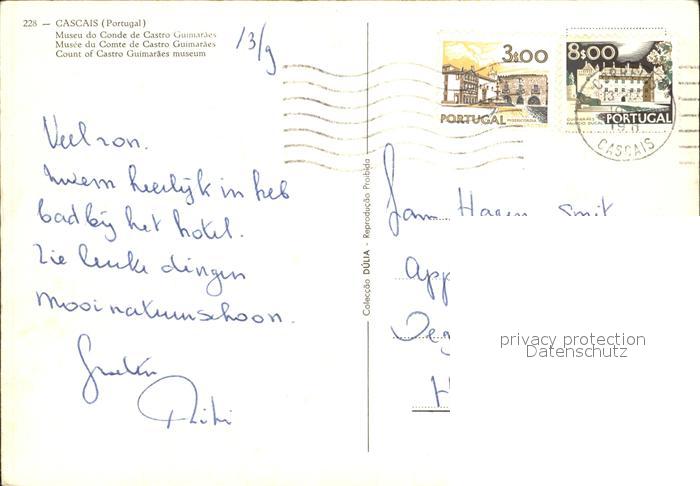 228 — CASCAIS (Portugal)
Museu do Conde de Castro Guimarães
Musée du Comte de Castro Guimarães
Count of Castro Guimarães museum
13/9
3$00
PORTUGAL
MISERICÓRDIA
8$00
GUIMARÃES
PALÁCIO DUCAL
PORTUGAL
CORREIOS
CASCAIS
Veel zon.
zwem heerlijk in het
bad bij het hotel.
Zie leuke dingen
mooi natuurschoon.
Groeten
Colecção DÚLIA - Reprodução Proibida
Fam Hagen Smit
App
Deg
H
privacy protection
Datenschutz